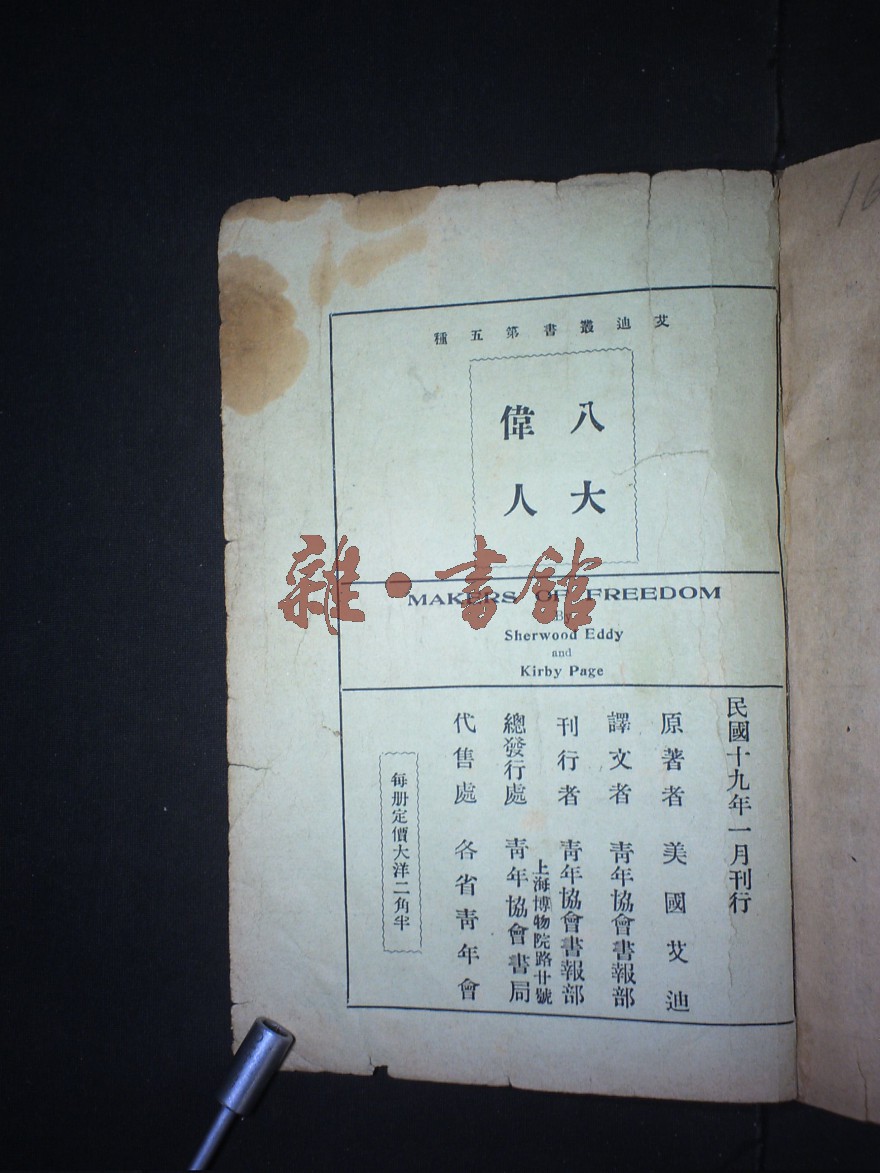 艾迪叢書第五種
八大
偉人
MAKERS OF FREEDOM
By
Sherwood Eddy
and
Kirby Page
民國十九年一月刊行
原著者 美國艾迪
譯文者 青年協會書報部
刊行者 青年協會書報部
上海博物院路廿號
總發行處 青年協會書局
代售處 各省青年會
每册定價大洋二角半
雜·書館
16